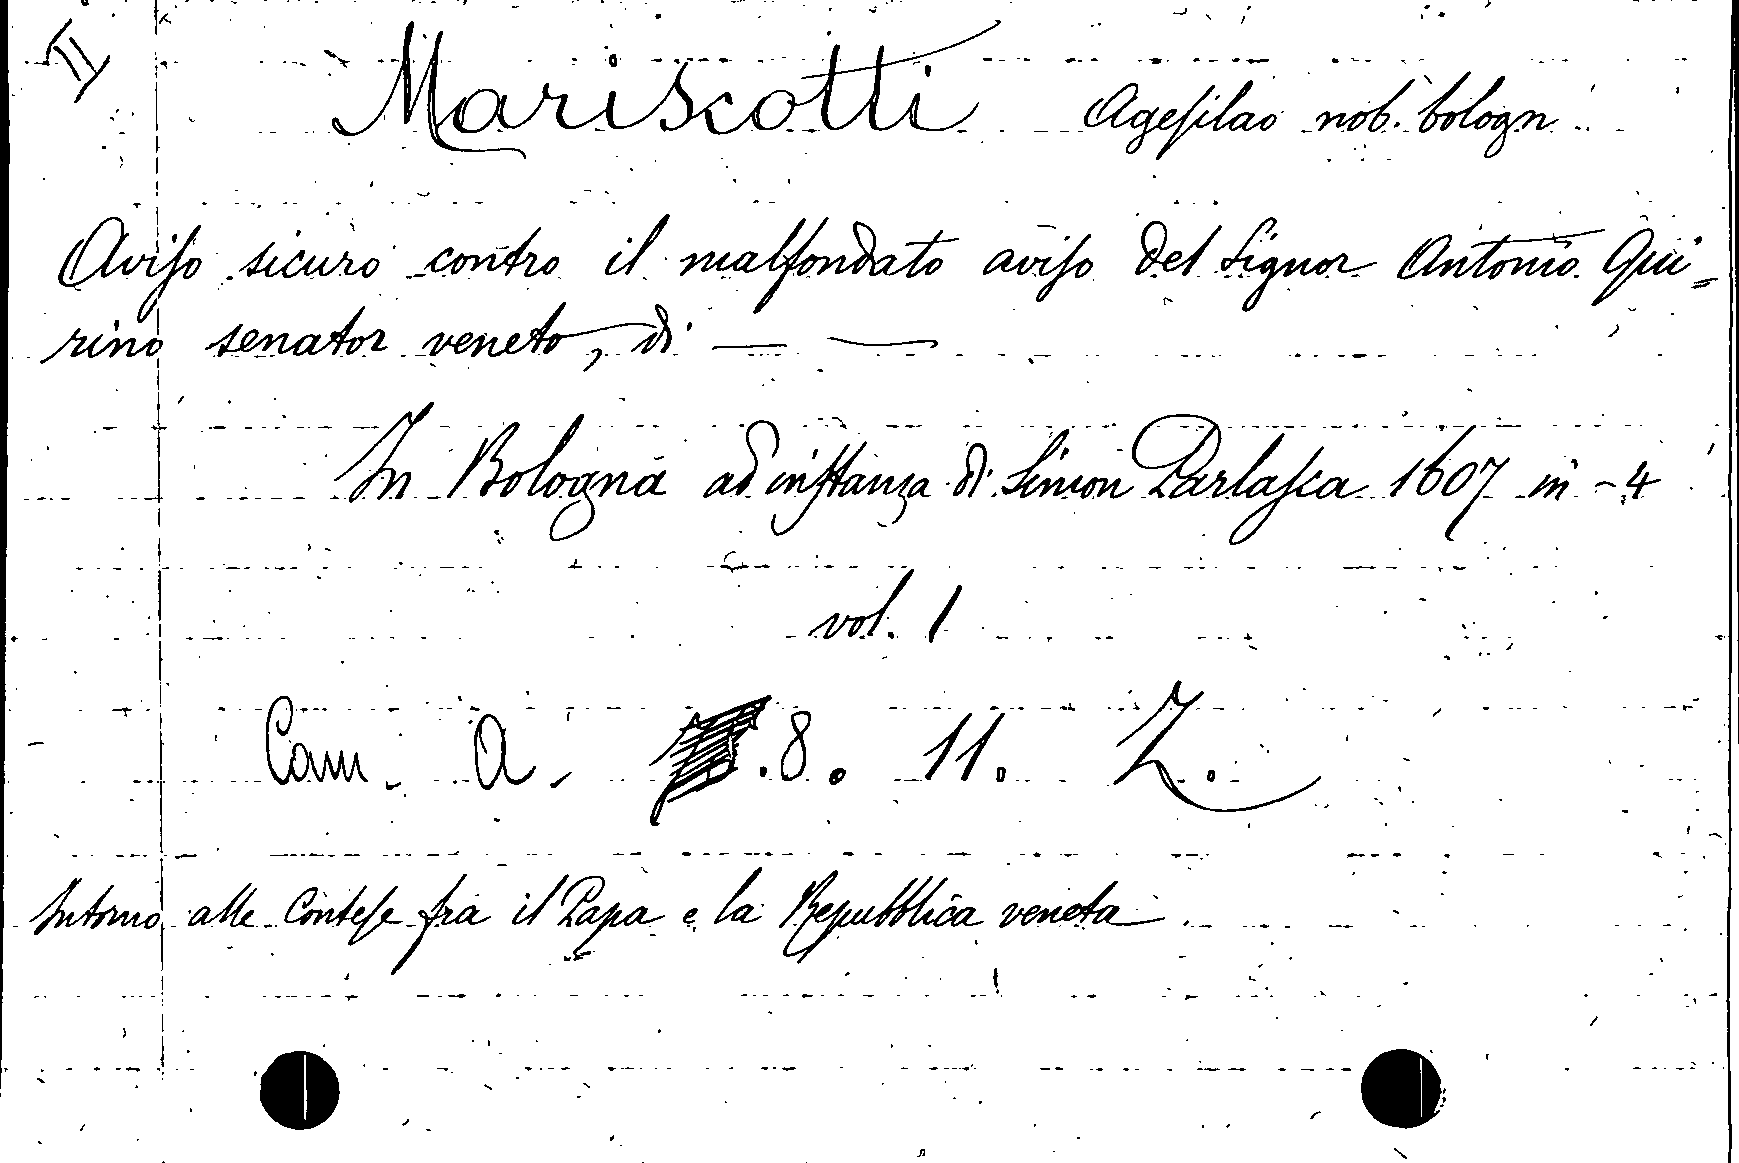 II
Mariscotti Agesilao nob. bologn
Aviso sicuro contro il malfondato aviso del Signor Antonio Qui=
rino senator veneto, di — —
In Bologna ad instanza di Simon Parlasca 1607 in-4
vol. 1
Cam. A. .8. 11. Z.
Intorno alle Contese fra il Papa e la Repubblica veneta